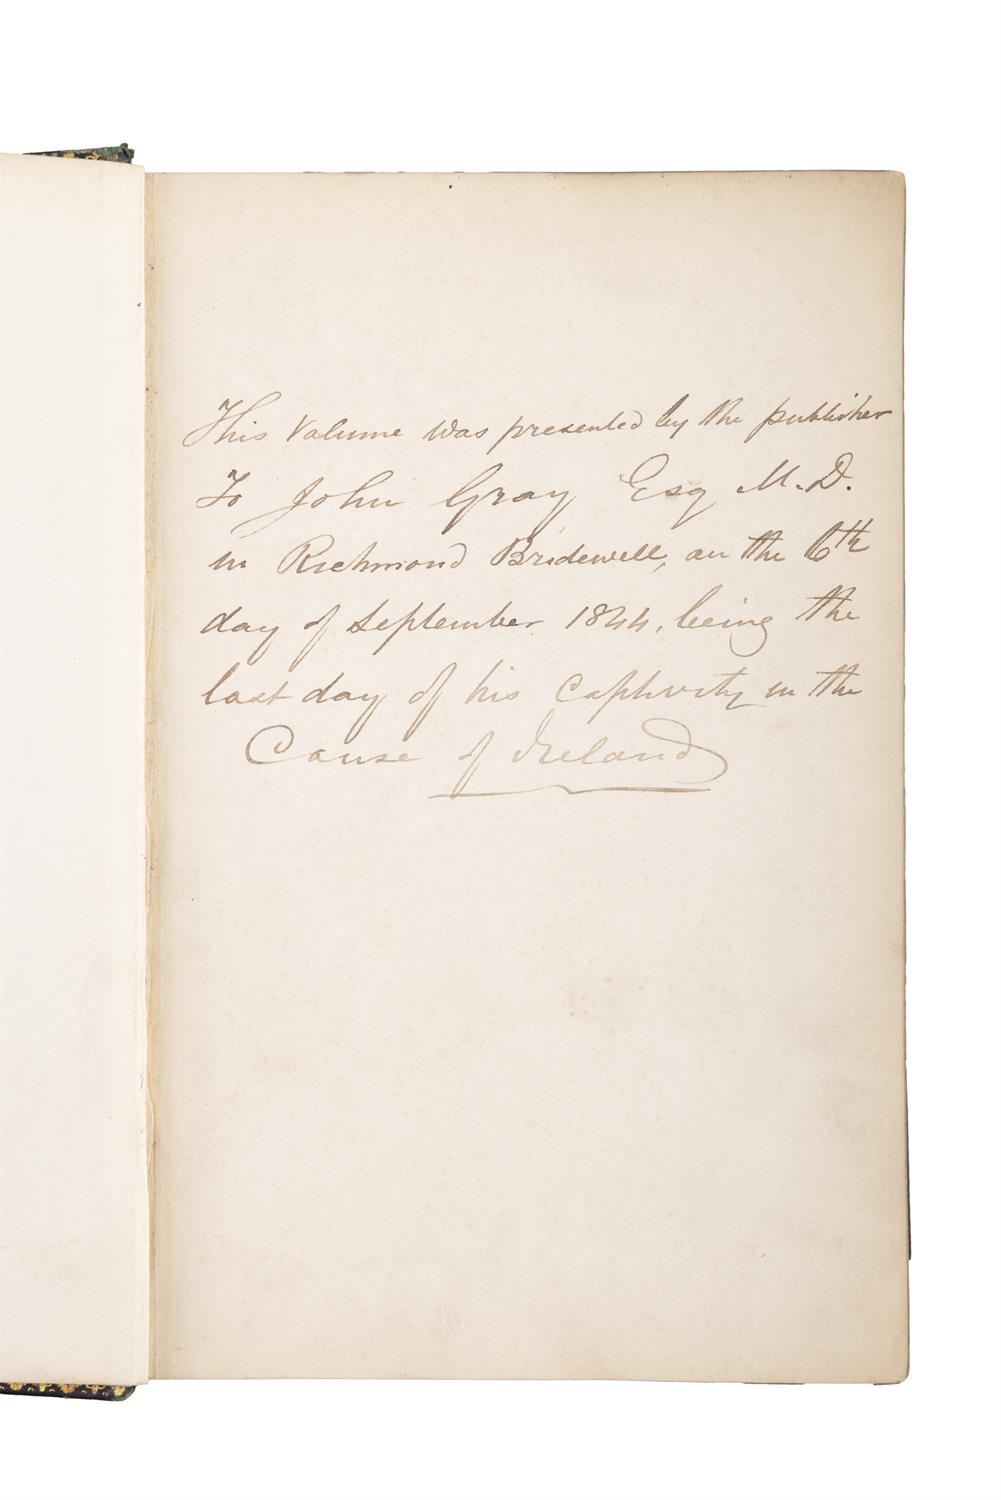 This Volume was presented by the publisher
To John Gray Esq M.D.
in Richmond Bridewell, on the 6th
day of September 1844, being the
last day of his Captivity in the
Cause of Ireland